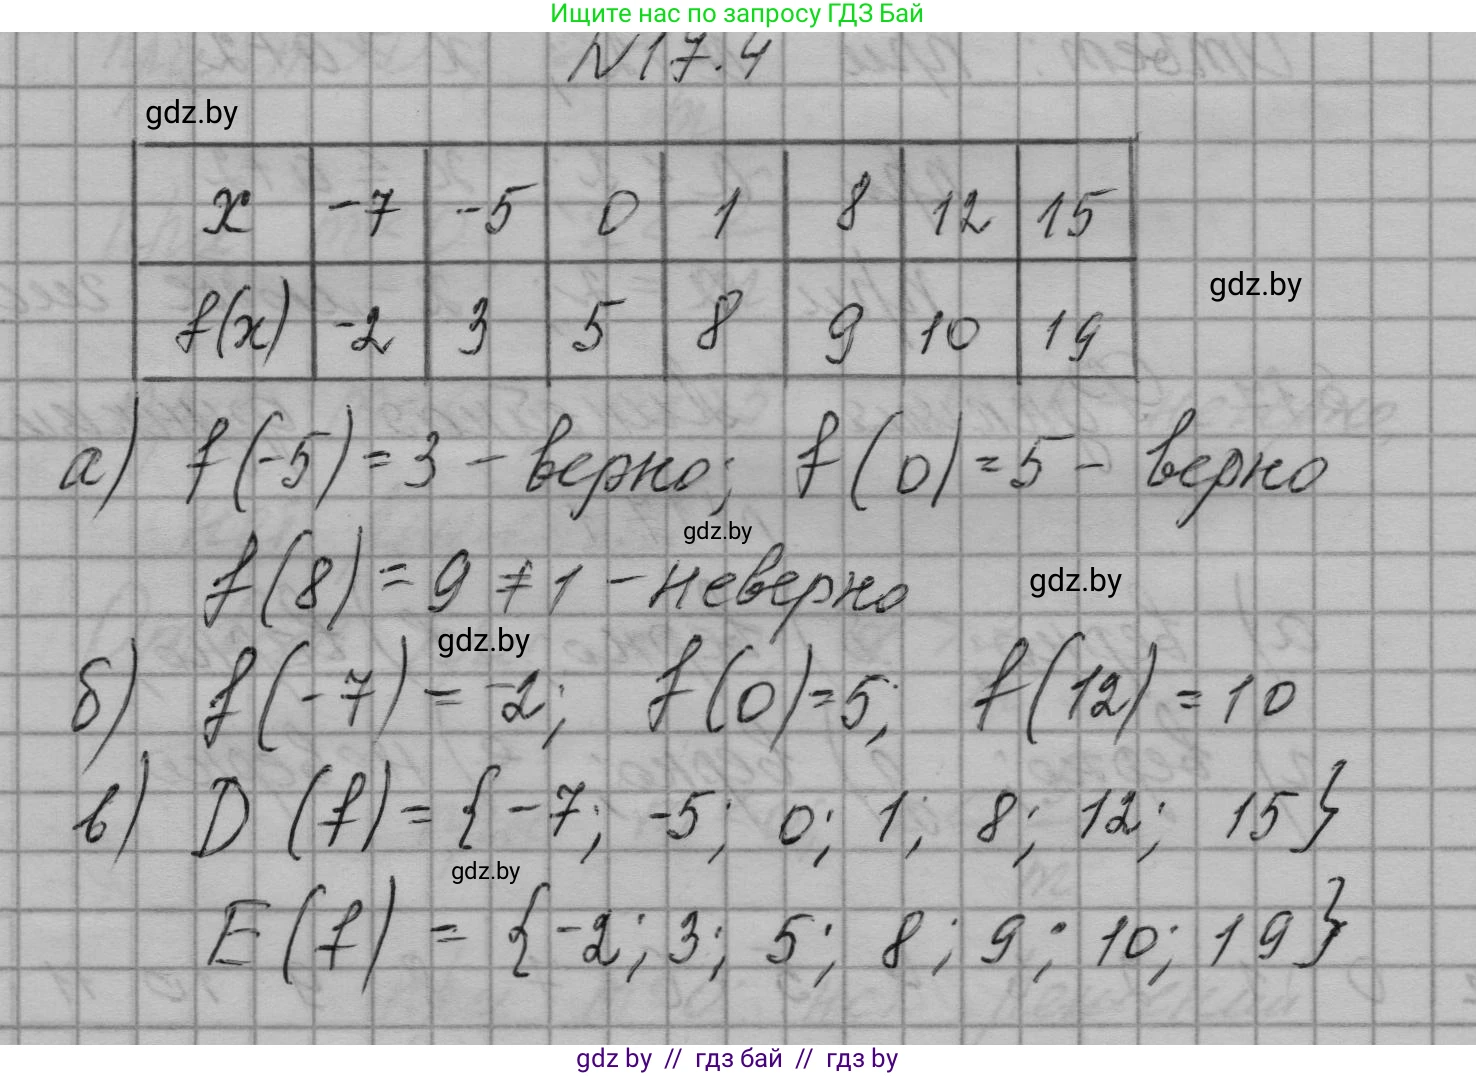 Ищите нас по запросу ГДЗ Бай
N17.4
gdz.by
x -7 -5 0 1 8 12 15
gdz.by
f(x) -2 3 5 8 9 10 19
а) f(-5)=3 - верно; f(0)=5 - верно
gdz.by
f(8)=9≠1 - неверно
gdz.by
gdz.by
б) f(-7)=-2; f(0)=5; f(12)=10
в) D(f)={-7; -5; 0; 1; 8; 12; 15}
gdz.by
E(f)={-2; 3; 5; 8; 9; 10; 19}
gdz by // гдз бай // гдз by